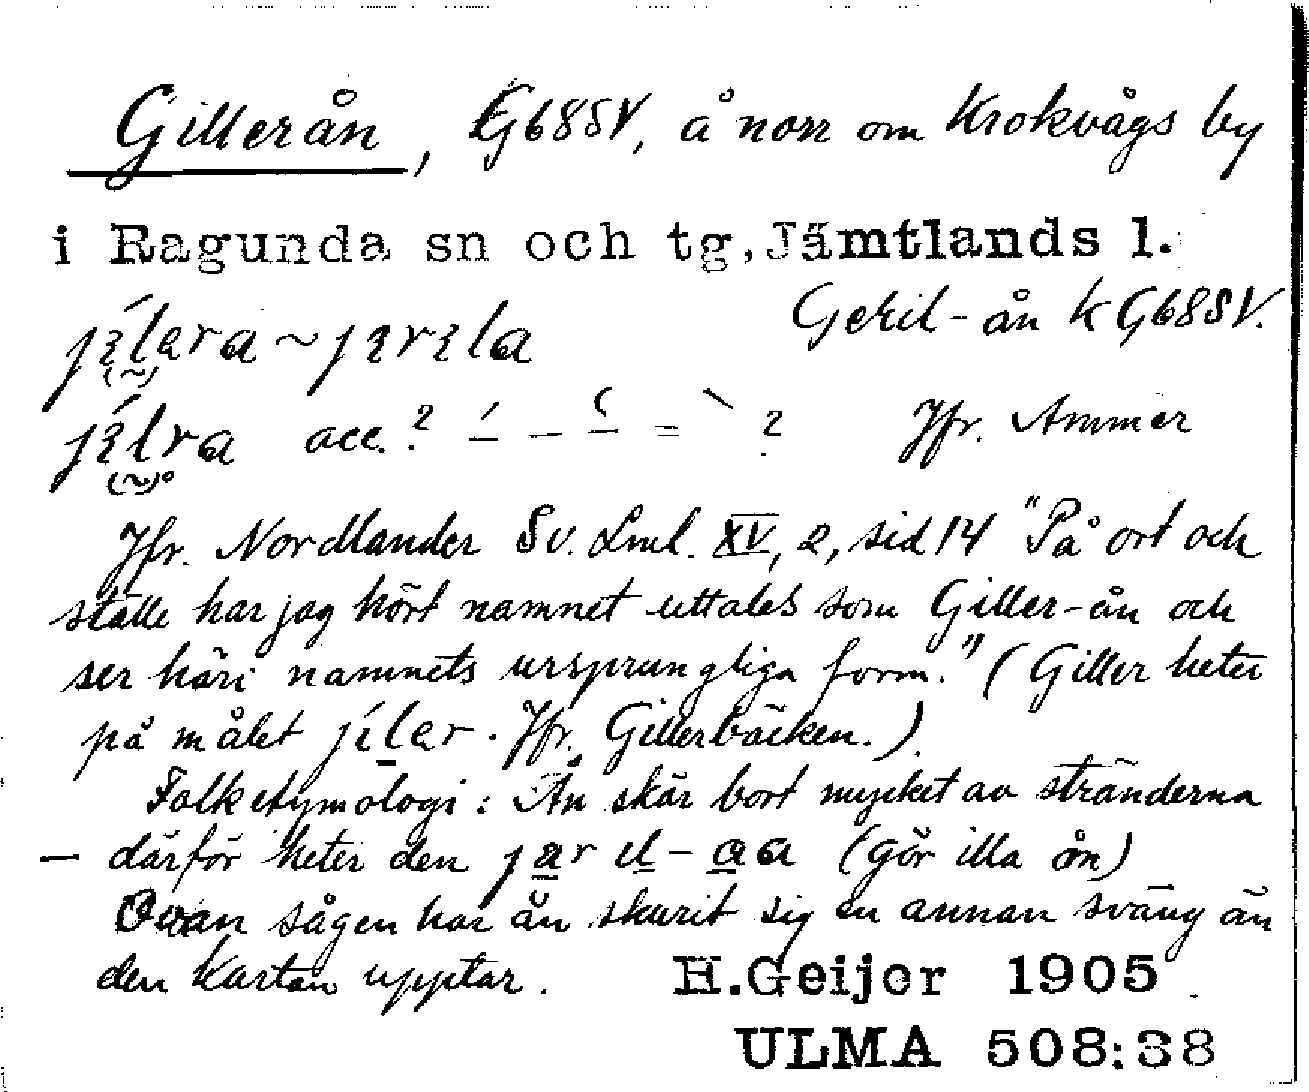 Gillerån, G68SV, å norr om Krokvågs by
i Ragunda sn och tg, Jämtlands l.
Geril-ån K G68SV.
acc. ? ? Jfr. Ammer
Jfr. Nordlander Sv. Lml. XV, 2, sid 14 "På ort och
ställe har jag hört namnet uttalas som Giller-ån och
ser häri namnets ursprungliga form." (Giller heter
på målet jílar. Jfr. Gillerbäcken.)
Folketymologi: Ån skär bort mycket av stränderna
— därför heter den (gör illa ån)
Ovan sågen har ån skurit sig en annan sväng än
den kartan upptar. H.Geijer 1905
ULMA 508:38